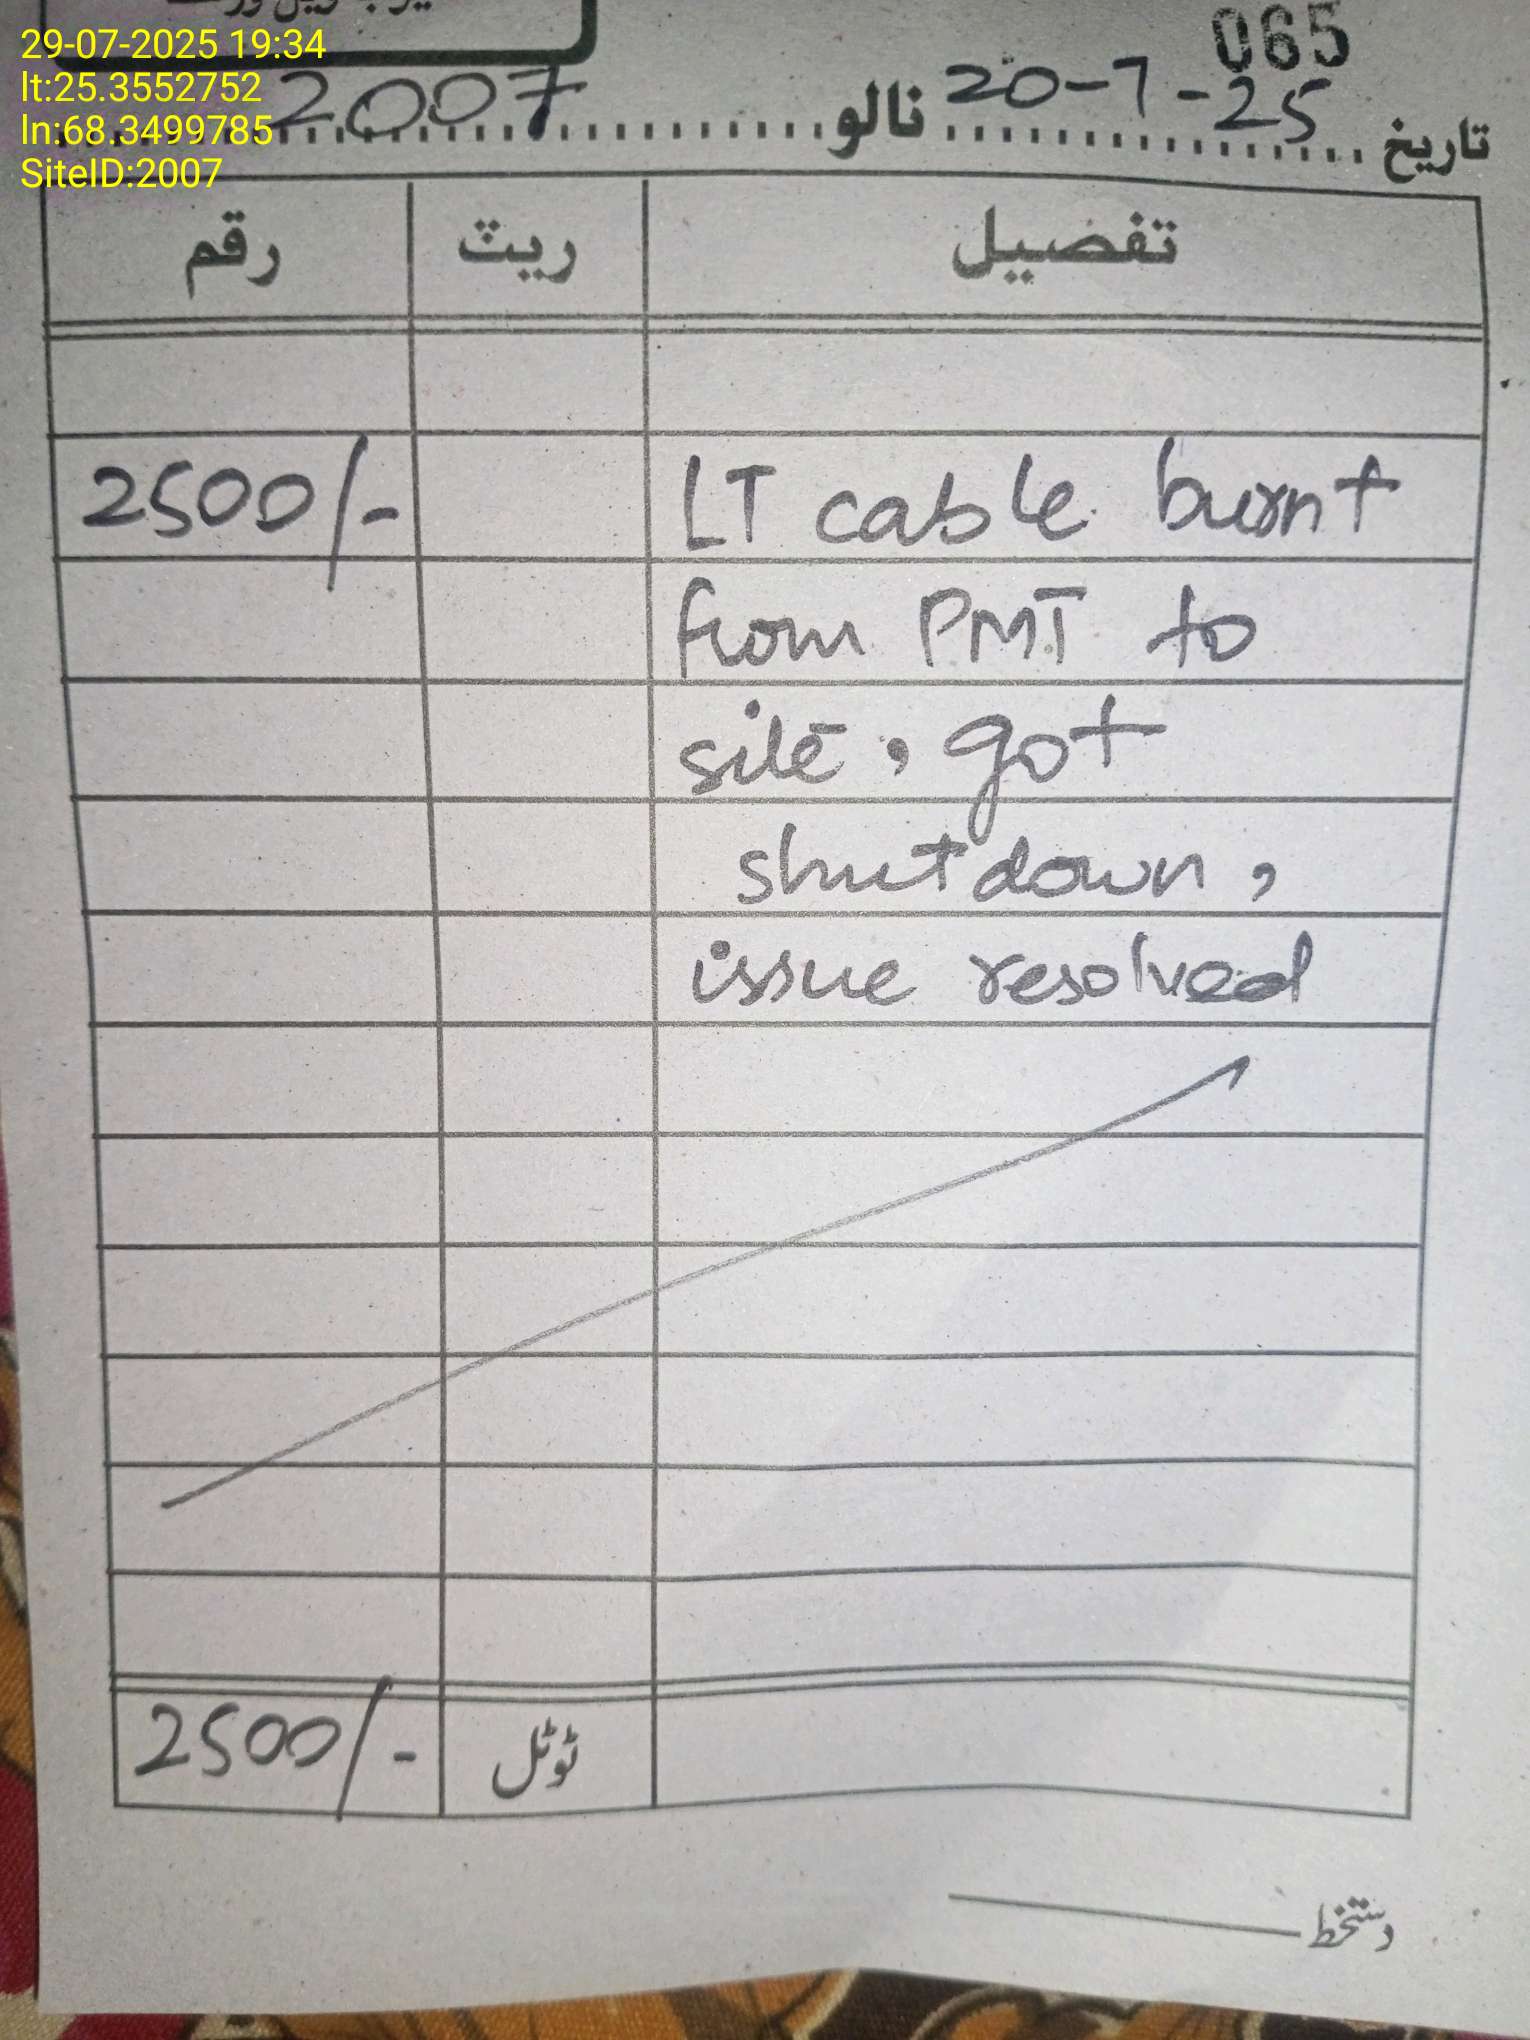 29-07-2025 19:34
lt:25.3552752
ln:68.3499785
SiteID:2007
065
تاريخ 20-7-25 نالو 2007
تفصيل ريٽ رقم
LT cable burnt 2500/-
from PMT to
site, got
shutdown,
issue resolved
ٽوٽل 2500/-
دستخط